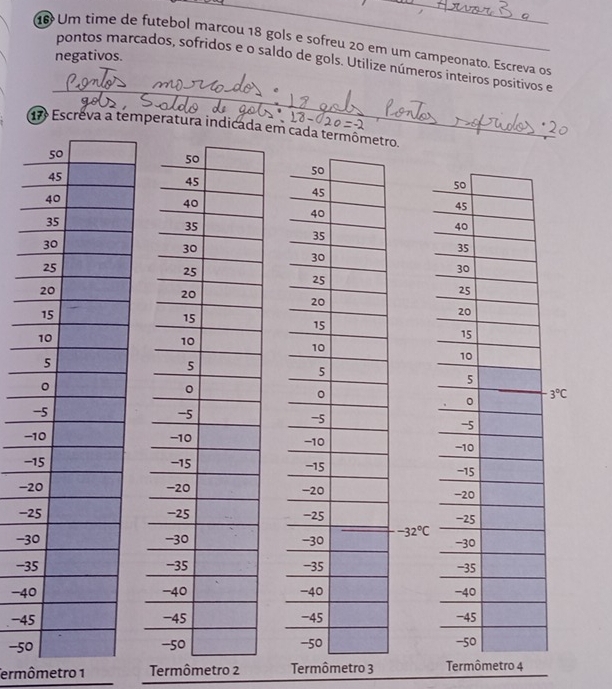 Árvore B e
16 Um time de futebol marcou 18 gols e sofreu 20 em um campeonato. Escreva os
pontos marcados, sofridos e o saldo de gols. Utilize números inteiros positivos e
negativos.
Pontos marcados: 18 gols, Pontos sofridos: 20
gols, Saldo de gols: 18-20=-2
17 Escreva a temperatura indicada em cada termômetro.
50 50 50 50
45 45 45 45
40 40 40 40
35 35 35 35
30 30 30 30
25 25 25 25
20 20 20 20
15 15 15 15
10 10 10 10
5 5 5 5
0 0 0 0 3°C
-5 -5 -5 -5
-10 -10 -10 -10
-15 -15 -15 -15
-20 -20 -20 -20
-25 -25 -25 -25
-30 -30 -30 -32°C -30
-35 -35 -35 -35
-40 -40 -40 -40
-45 -45 -45 -45
-50 -50 -50 -50
ermômetro 1 Termômetro 2 Termômetro 3 Termômetro 4